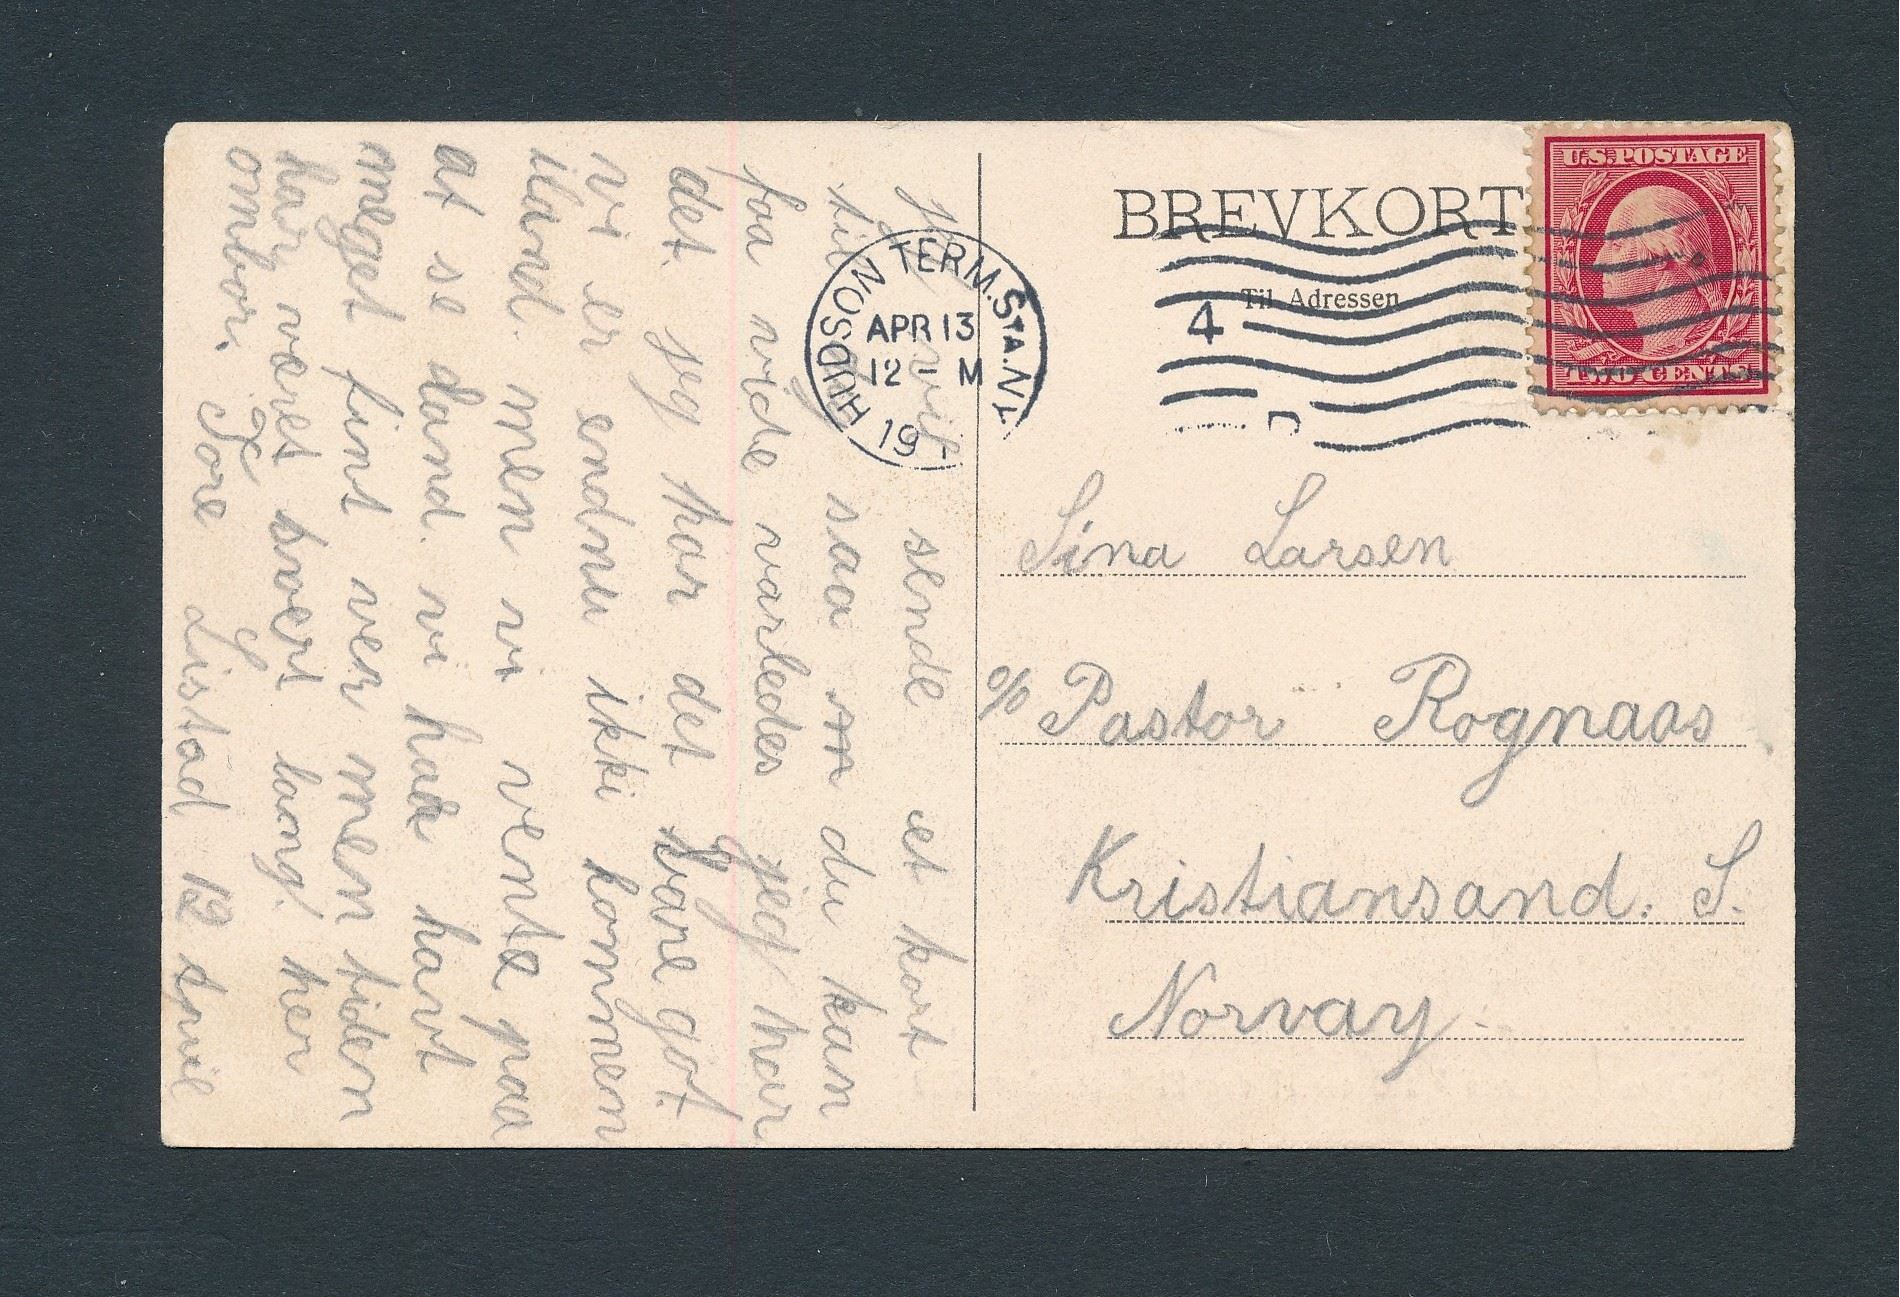 BREVKORT
Til Adressen
U.S. POSTAGE
TWO CENTS
HUDSON TERM. STA. N.Y.
APR 13
12 - M
19
4
Sina Larsen
c/o Pastor Rognaas
Kristiansand. S.
Norvay
jeg vil sende et kort
til dig saa du kan
faa vide varledes jeg har
det. jeg har det bare got.
vi er endnu ikki kommen
iland. men vi venta paa
at se land. vi har havt
meget fint ver men tiden
har været svert lang! her
ombor. Tore Listad 12 April